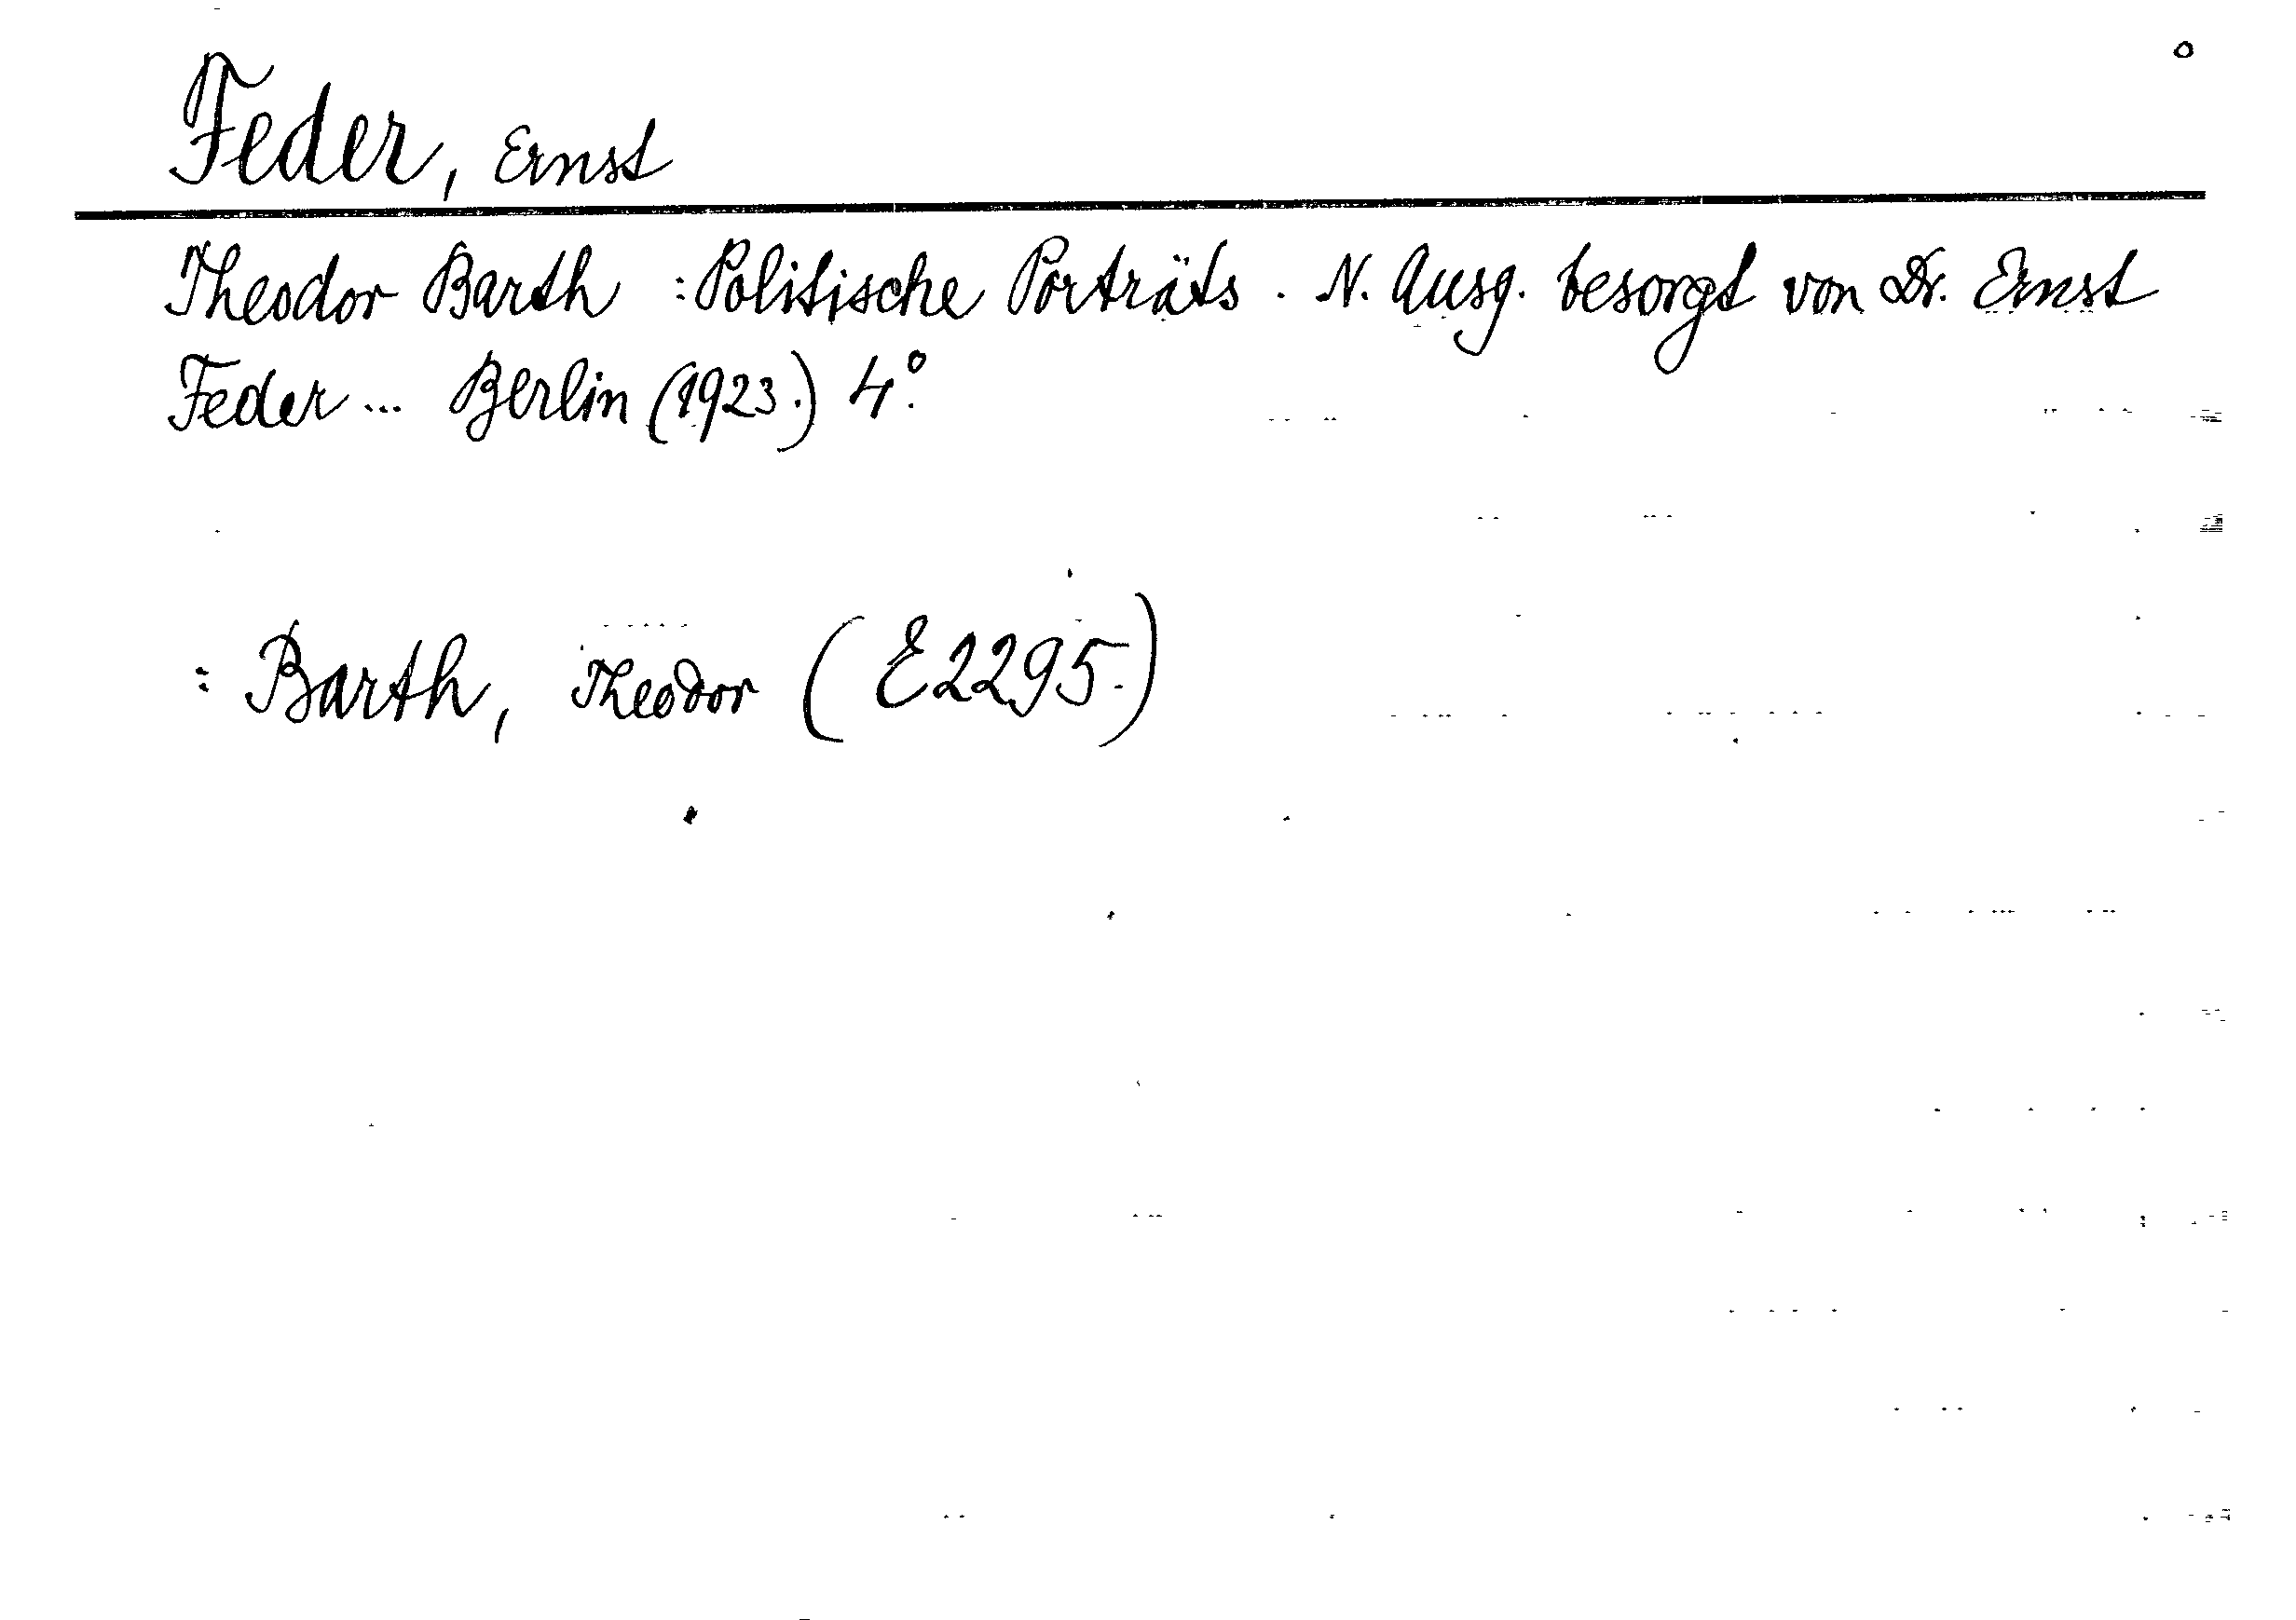 Feder, Ernst
Theodor Barth : Politische Porträts. N. Ausg. besorgt von Dr. Ernst
Feder ... Berlin (1923.) 4°.
: Barth, Theodor (E2295.)